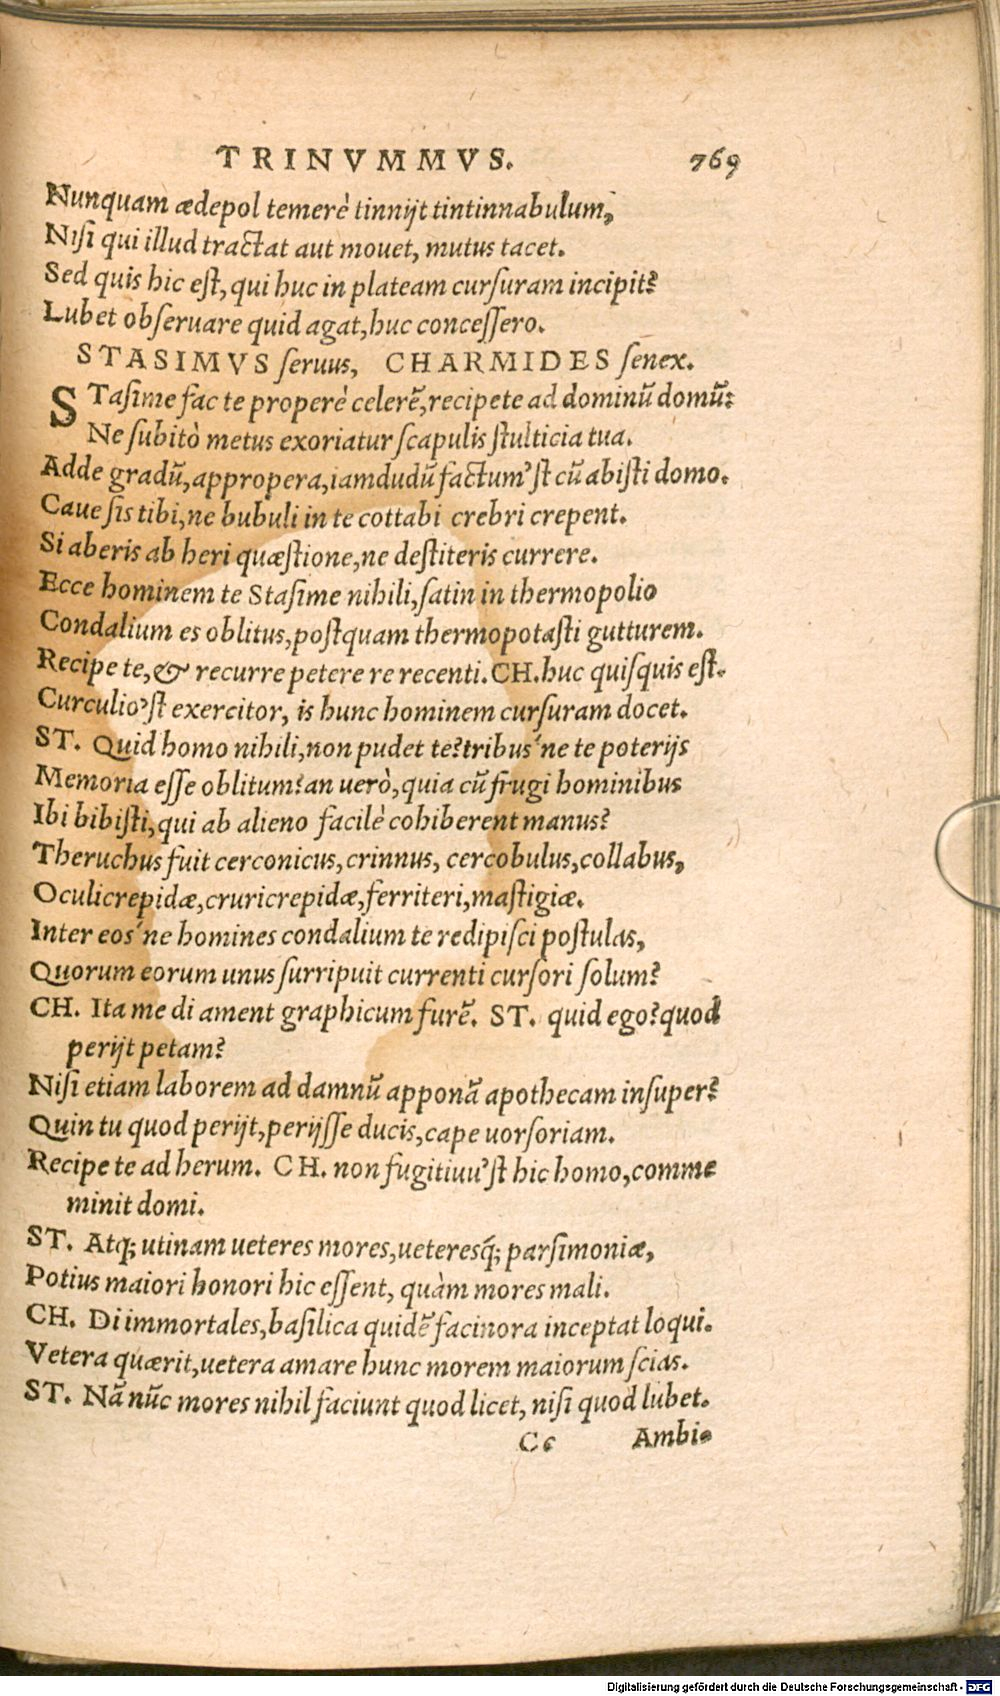 TRINVMMVS. 769
Nunquam ædepol temerè tinnijt tintinnabulum,
Nisi qui illud tractat aut mouet, mutus tacet.
Sed quis hic est, qui huc in plateam cursuram incipit?
Lubet obseruare quid agat, huc concessero.
STASIMVS seruus, CHARMIDES senex.
STasime fac te properè celerē, recipe te ad dominū domū:
Ne subitò metus exoriatur scapulis stulticia tua.
Adde gradū, appropera, iamdudū factum'st cū abisti domo.
Caue sis tibi, ne bubuli in te cottabi crebri crepent.
Si aberis ab heri quæstione, ne destiteris currere.
Ecce hominem te Stasime nihili, satin in thermopolio
Condalium es oblitus, postquam thermopotasti gutturem.
Recipe te, & recurre petere re recenti. CH. huc quisquis est.
Curculio'st exercitor, is hunc hominem cursuram docet.
ST. Quid homo nihili, non pudet te? tribus'ne te poterijs
Memoria esse oblitum? an uerò, quia cū frugi hominibus
Ibi bibisti, qui ab alieno facilè cohiberent manus?
Theruchus fuit cerconicus, crinnus, cercobulus, collabus,
Oculicrepidæ, cruricrepidæ, ferriteri, mastigiæ.
Inter eos'ne homines condalium te redipisci postulas,
Quorum eorum unus surripuit currenti cursori solum?
CH. Ita me di ament graphicum furē. ST. quid ego? quod
perijt petam?
Nisi etiam laborem ad damnū apponā apothecam insuper?
Quin tu quod perijt, perijsse ducis, cape uorsoriam.
Recipe te ad herum. CH. non fugitiuu'st hic homo, comme
minit domi.
ST. Atq; utinam ueteres mores, ueteresq́; parsimoniæ,
Potius maiori honori hic essent, quàm mores mali.
CH. Di immortales, basilica quidē facinora inceptat loqui.
Vetera quærit, uetera amare hunc morem maiorum scias.
ST. Nā nūc mores nihil faciunt quod licet, nisi quod lubet.
Cc Ambi-
Digitalisierung gefördert durch die Deutsche Forschungsgemeinschaft - DFG